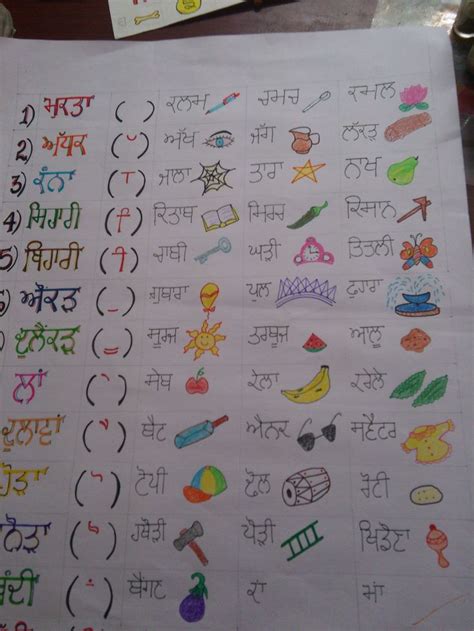 1) ਮੁਕਤਾ ( ) ਕਲਮ ਚਮਚ ਕਮਲ
2) ਅੱਧਕ ( ੱ ) ਅੱਖ ਜੱਗ ਲੱਕੜ
3) ਕੰਨਾ ( ਾ ) ਜਾਲਾ ਤਾਰਾ ਨਾਖ
4) ਸਿਹਾਰੀ ( ਿ ) ਕਿਤਾਬ ਮਿਰਚ ਕਿਸਾਨ
5) ਬਿਹਾਰੀ ( ੀ ) ਚਾਬੀ ਘੜੀ ਤਿਤਲੀ
ਔਂਕੜ ( ੁ ) ਗੁਬਾਰਾ ਪੁਲ ਫੁਹਾਰਾ
ਦੁਲੈਂਕੜ ( ੂ ) ਸੂਰਜ ਤਰਬੂਜ ਆਲੂ
ਲਾਂ ( ੇ ) ਸੇਬ ਕੇਲਾ ਕਰੇਲੇ
ਦੁਲਾਵਾਂ ( ੈ ) ਬੈਟ ਐਨਕ ਸਵੈਟਰ
ਹੋੜਾ ( ੋ ) ਟੋਪੀ ਢੋਲ ਰੋਟੀ
ਕਨੌੜਾ ( ੌ ) ਹਥੌੜੀ ਪੌੜੀ ਖਿਡੌਣਾ
ਬਿੰਦੀ ( ਂ ) ਬੈਂਗਣ ਕਾਂ ਮਾਂ